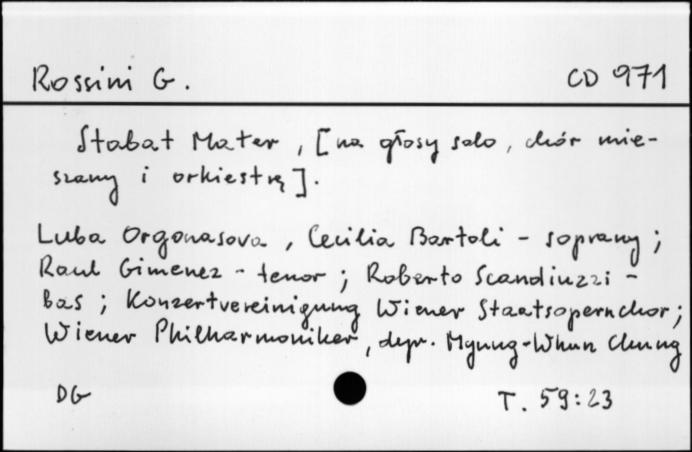 Rossini G. CD 971
Stabat Mater, [na głosy solo, chór mie-
szany i orkiestrę].
Luba Orgonasova, Cecilia Bartoli - soprany;
Raul Gimenez - tenor; Roberto Scandiuzzi -
bas; Konzertvereinigung Wiener Staatsopernchor;
Wiener Philharmoniker, dyr. Myung-Whun Chung
DG T. 59:23